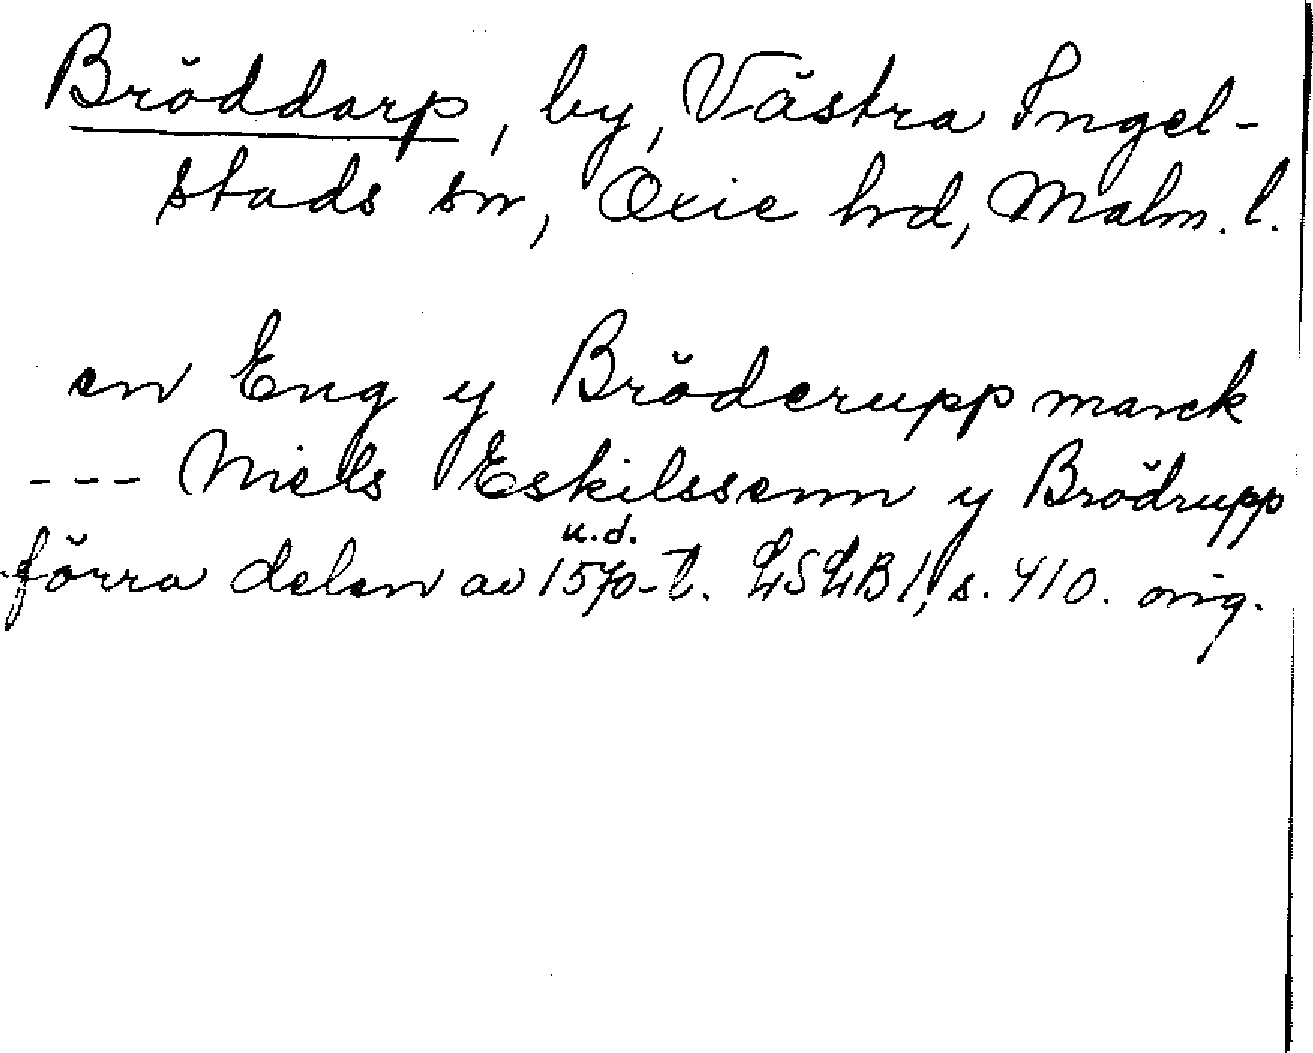 Bröddarp, by, Västra Ingel-
stads sn, Oxie hrd, Malm. l.
en Eng y Bröderupp marck
--- Niels Eskilssenn y Brödrupp
u.d.
förra delen av 1570-t. LSLB 1, s. 410. orig.